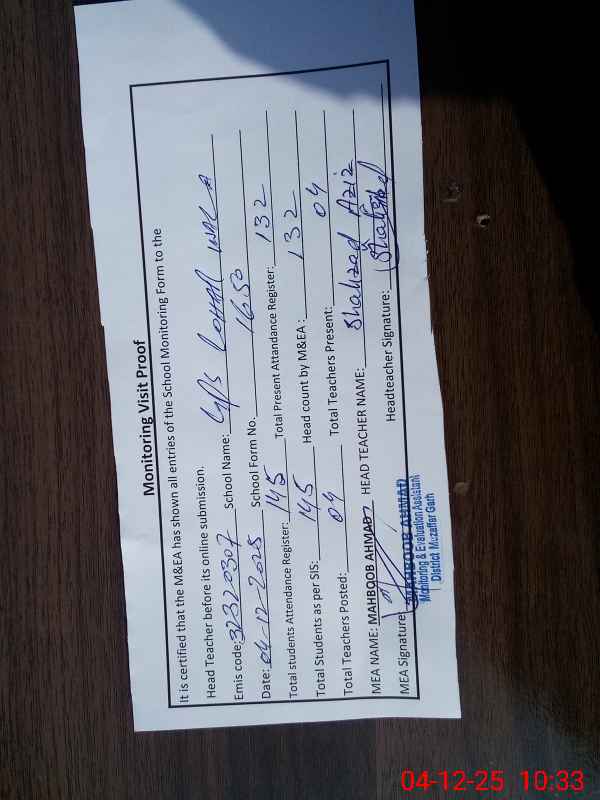 Monitoring Visit Proof
It is certified that the M&EA has shown all entries of the School Monitoring Form to the
Head Teacher before its online submission.
Emis code: 32320307 School Name: GPS
Date: 04-12-2025 School Form No. 1650
Total students Attendance Register: 145 Total Present Attandance Register: 132
Total Students as per SIS: 145 Head count by M&EA : 132
Total Teachers Posted: 04 Total Teachers Present: 04
MEA NAME: MAHBOOB AHMAD HEAD TEACHER NAME: Shahzad Aziz
MEA Signature: Headteacher Signature:
MAHBOOB AHMAD
Monitoring & Evaluation Assistant
District Muzaffar Garh
04-12-25 10:33